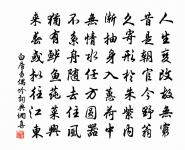 人生變改故無窮
昔是朝官今野翁
久寄形於朱紫內
漸抽身入蕙荷中
無情水任方圓器
不繫舟隨去住風
猶有鱸魚蓴菜興
來春或擬往江東
白居易偶吟詞典網書